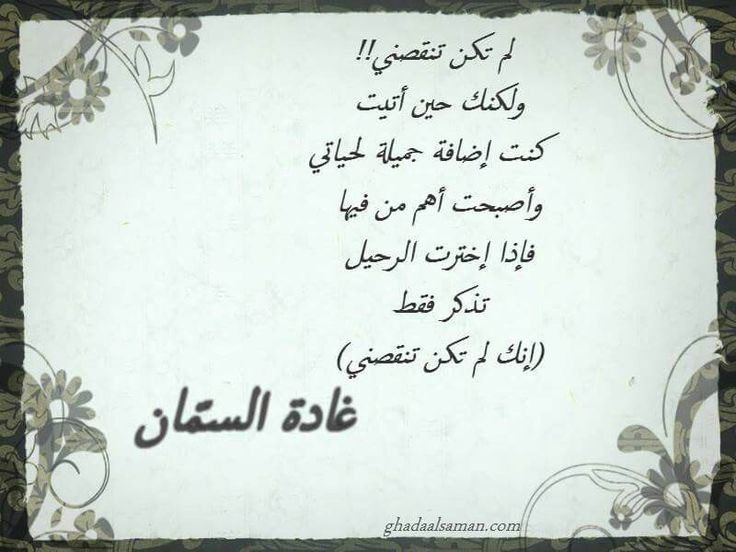 لم تكن تنقصني!!
ولكنك حين أتيت
كنت إضافة جميلة لحياتي
وأصبحت أهم من فيها
فإذا إخترت الرحيل
تذكر فقط
(إنك لم تكن تنقصني)
غادة السمّان
ghadaalsaman.com